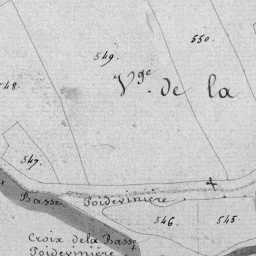 550.
549.
548.
Vge. de la
547.
Basse Poidevinière
546.
545.
Croix de la Basse
Poidevinière